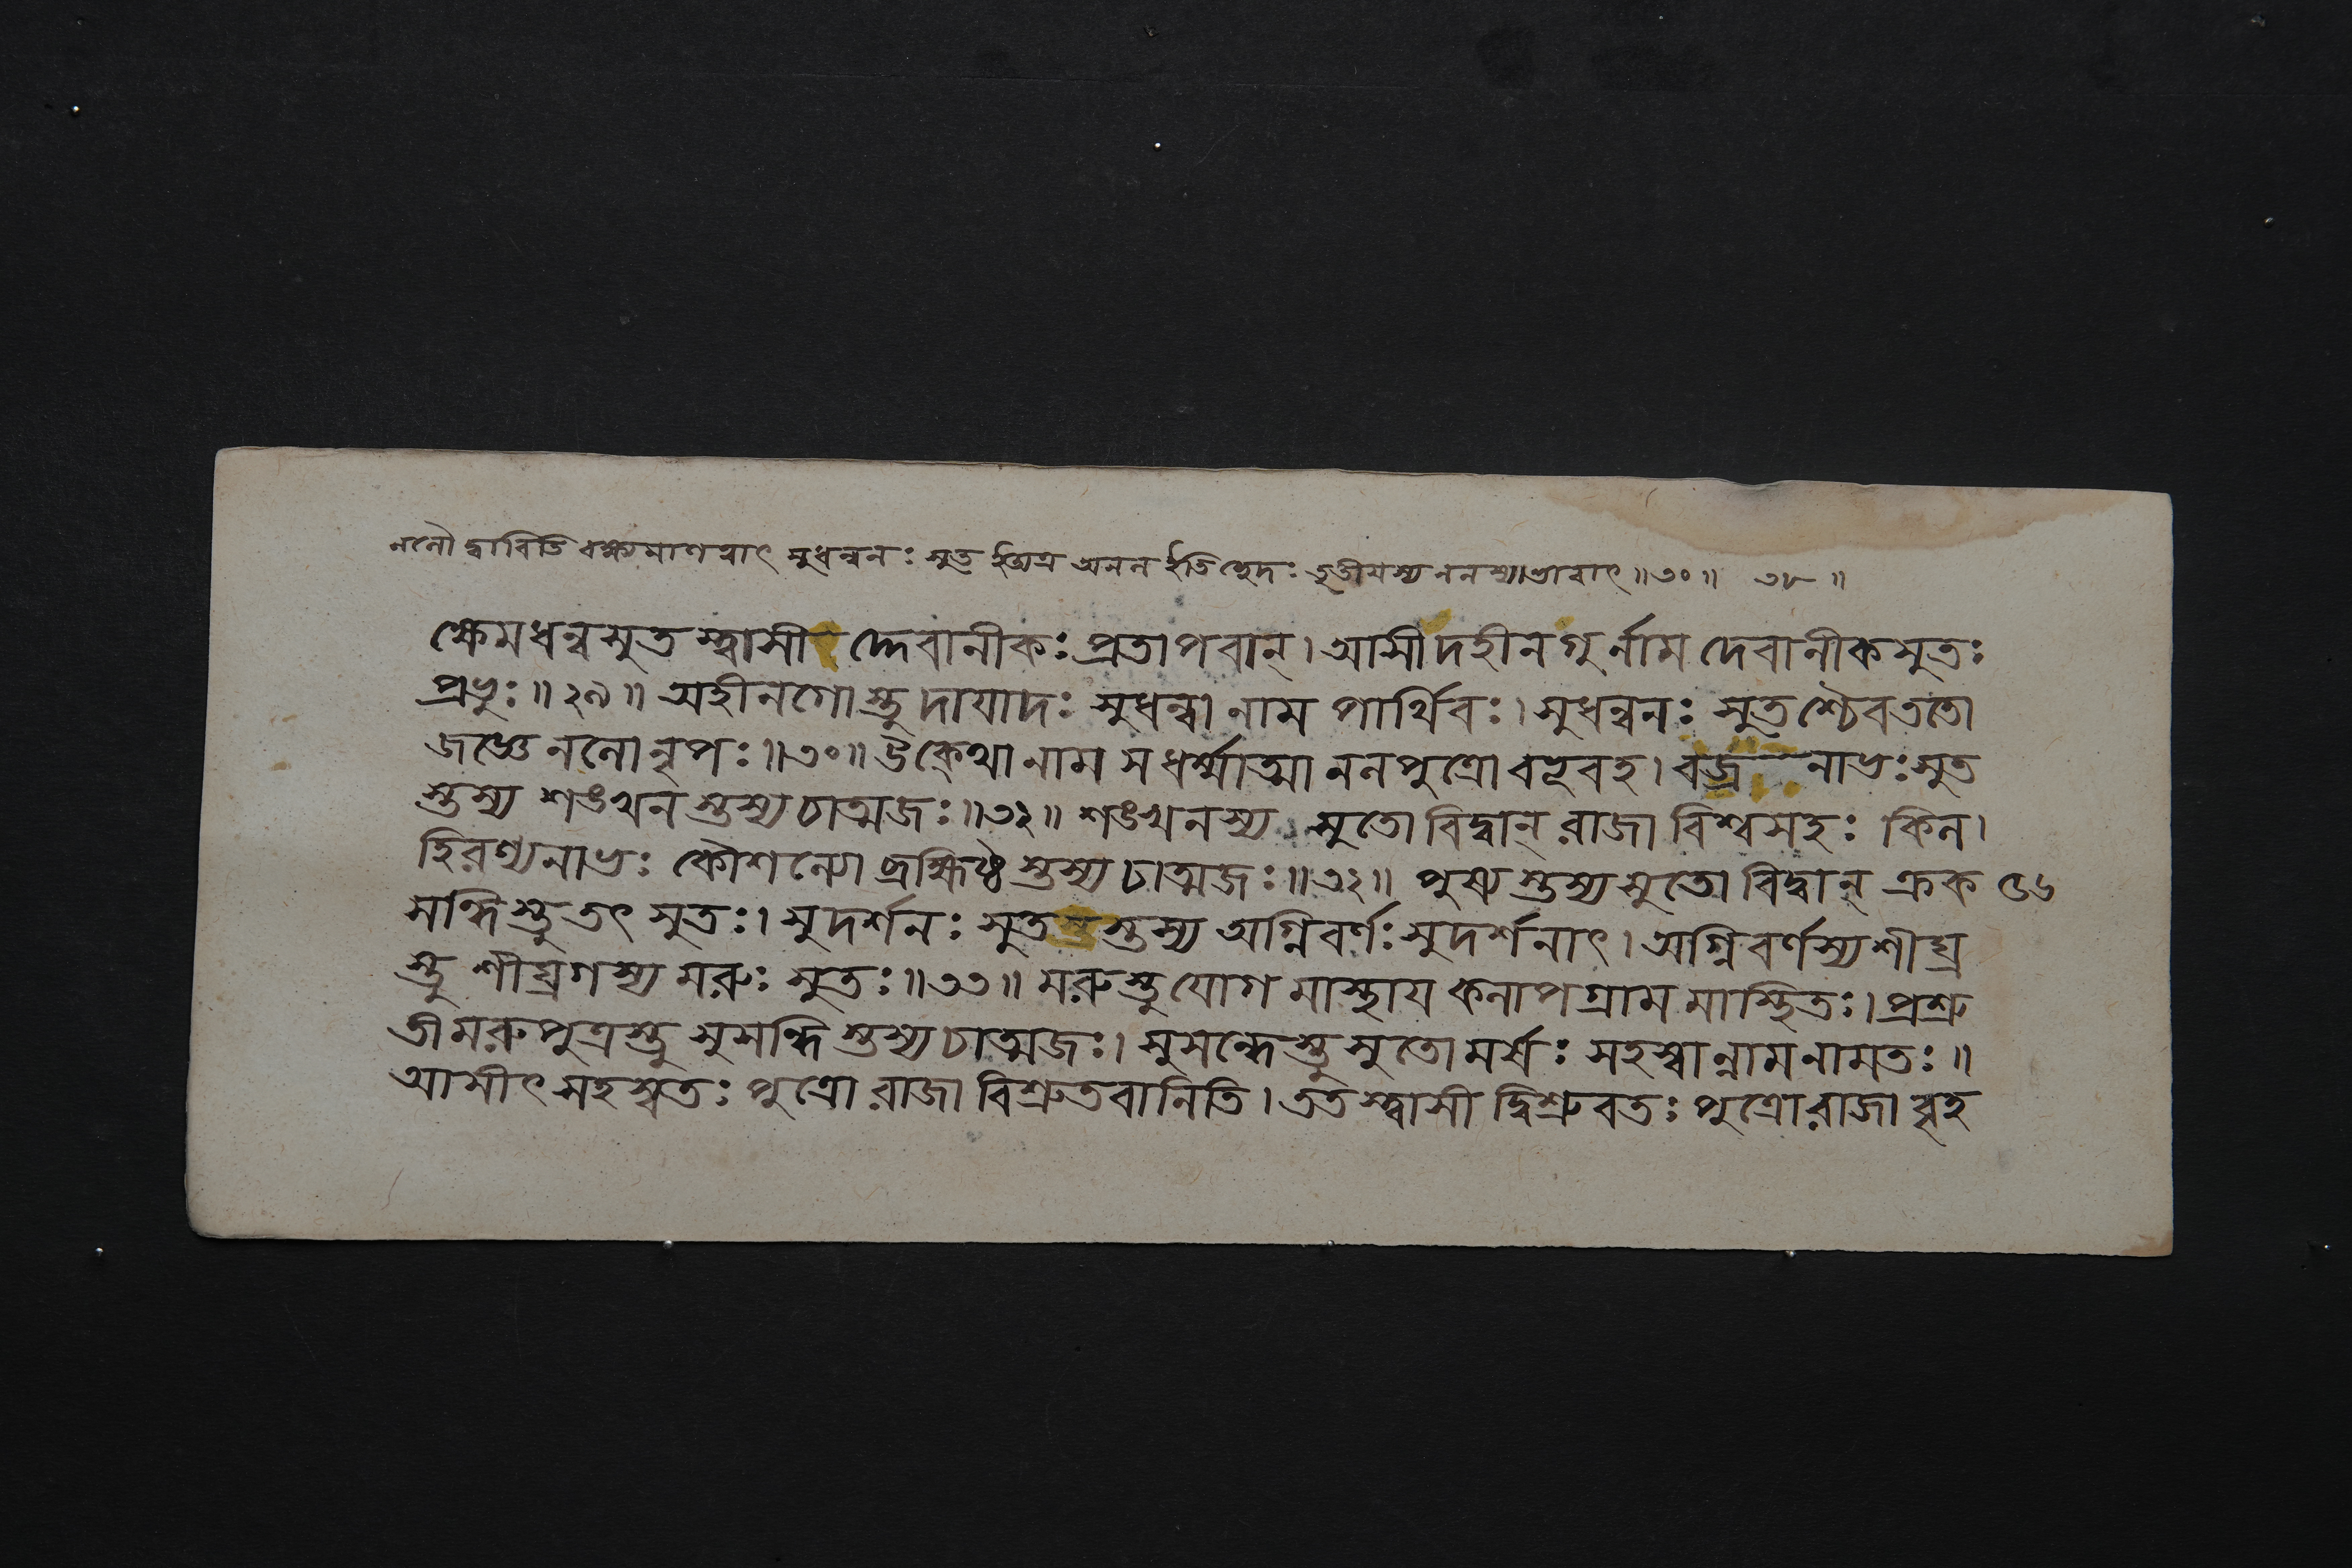 ননৌ দ্বাবিতি বক্ষ্যমাণত্বাৎ সুধন্বনঃ সুত ইত্যত্র অনন ইতিচ্ছেদঃ তৃতীয়স্য ননস্যাভাবাৎ ॥৩০॥ ৩৮ ॥
ক্ষেমধন্বসুত স্ত্বাসী দ্দেবানীকঃ প্রতাপবান্। আসীদহীনগুর্নাম দেবানীকসুতঃ
প্রভুঃ ॥২৯॥ অহীনগো স্তু দাযাদঃ সুধন্বা নাম পার্থিবঃ। সুধন্বনঃ সুতশ্চৈব ততো
জজ্ঞে ননো নৃপঃ ॥৩০॥ উক্থো নাম স ধর্ম্মাত্মা ননপুত্রো বভূবহ। বজ্র নাভঃ সুত
স্তস্য শঙখন স্তস্য চাত্মজঃ ॥৩২॥ শঙখনস্য সুতো বিদ্বান্ রাজা বিশ্বসহঃ কিন।
হিরণ্যনাভঃ কৌশন্যো ব্রহ্মিষ্ঠ স্তস্য চাত্মজঃ ॥৩২॥ পুষ্প স্তস্য সুতো বিদ্বান্ ক্রক ৫৬
সন্ধি স্তু তৎ সুতঃ। সুদর্শনঃ সুত স্তস্য অগ্নিবর্ণঃ সুদর্শনাৎ। অগ্নিবর্ণস্য শীঘ্র
স্তু শীঘ্রগস্য মরুঃ সুতঃ ॥৩৩॥ মরু স্তু যোগ মাস্থায কনাপগ্রাম মাস্থিতঃ। প্রশ্রু
তী মরুপুত্রস্তু সুসন্ধি স্তস্য চাত্মজঃ। সুসন্ধেস্তু সুতো মর্ষঃ সহস্বান্নাম নামতঃ ॥
আসীৎ সহস্বতঃ পুত্রো রাজা বিশ্রুতবানিতি। তত স্ত্বাসী দ্বিশ্রুবতঃ পুত্রো রাজা বৃহ